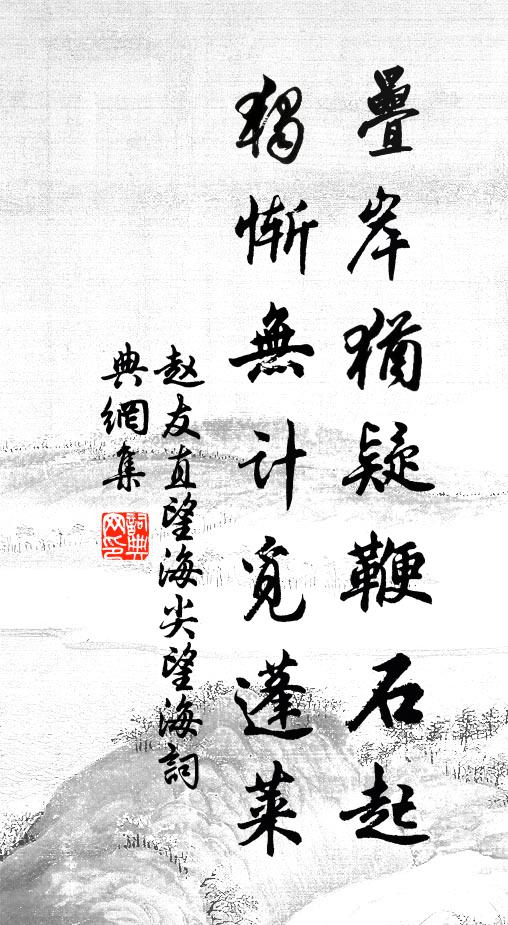 疊岸猶疑鞭石起
獨慚無計覓蓬萊
赵友直望海尖望海詞
典網集
詞典
网印